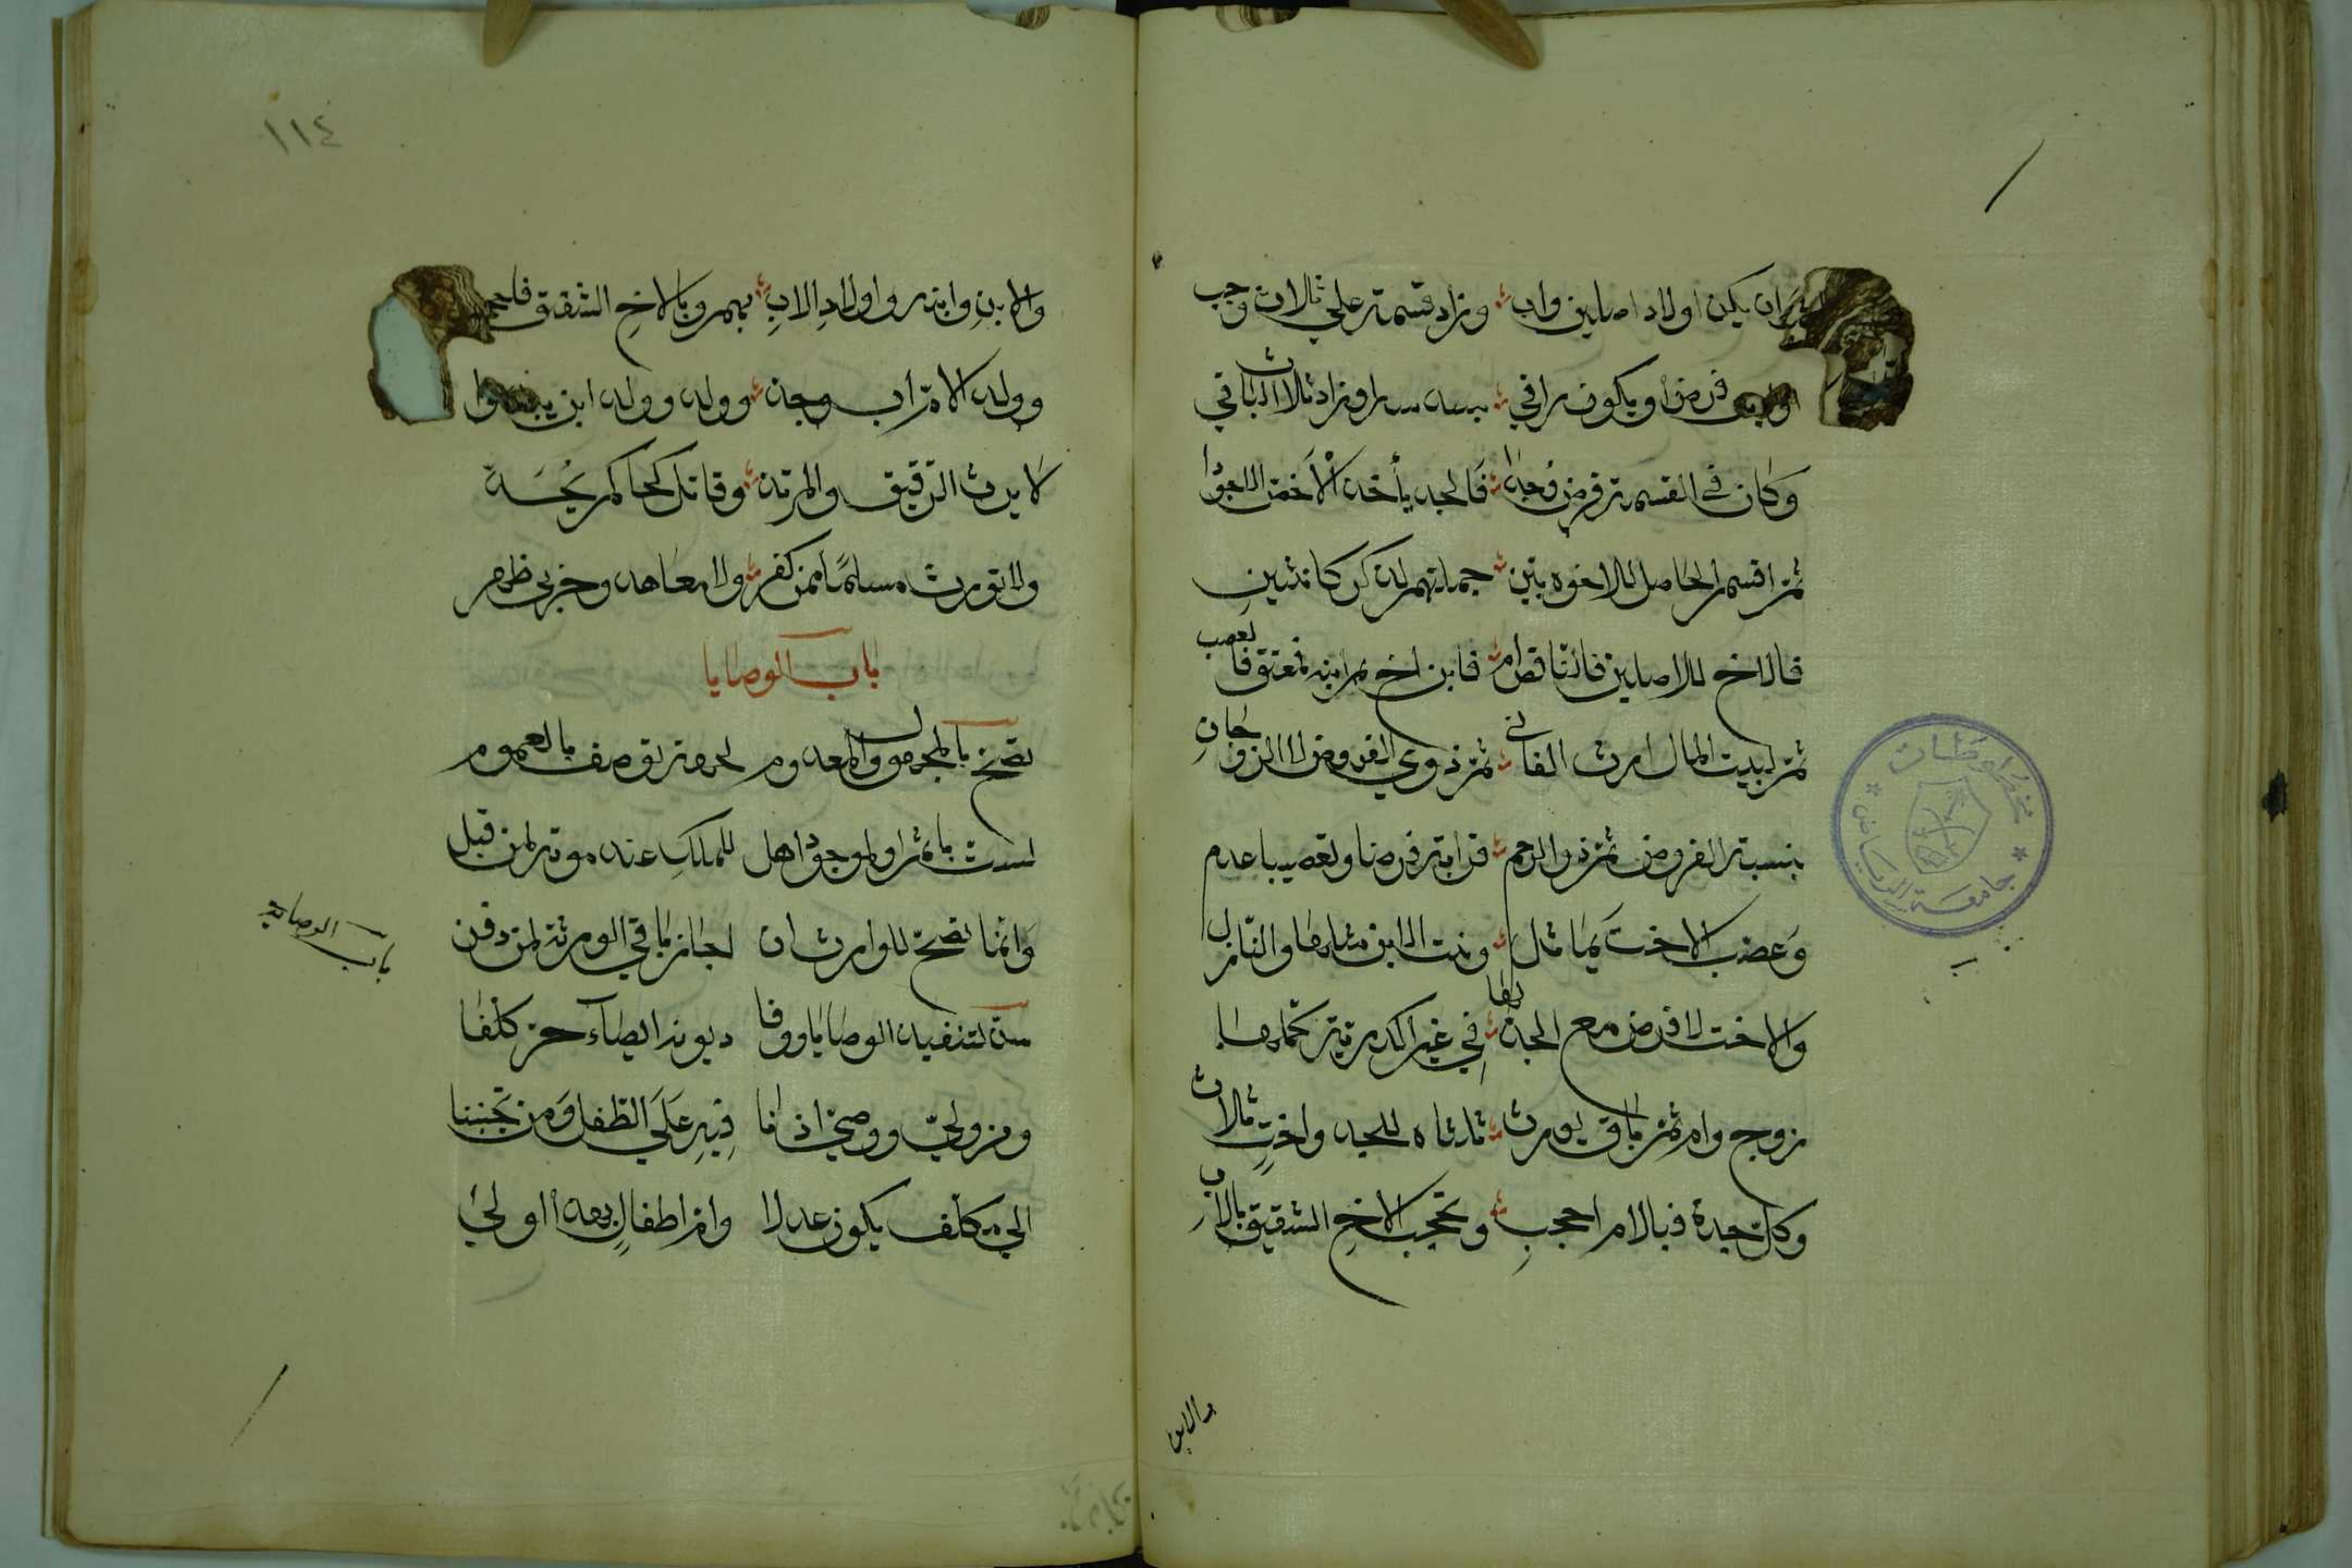 ان يكن اولاد اصلين واب وزاد قسمة على ثلاث وجب
فرض او يكون راقي بسدسها وزاد ثلث الباقي
وكان في القسمة فرض وجدا فالجد يأخذ الاخف الاجودا
ثم اقسم الحاصل للاخوه بين جملتهم لذكر كانثيين
فالاخ للاصلين فالناقص ام فابن اخ ثم ابنه فمعتق فالعصب
ثم لبيت المال ارث الفاني ثم ذوي الفروض لا الزوجان
بنسبة الفروض ثم ذو الرحم قرابة فرضا وتعصيبا عدم
وعصب الاخت بما ثل وبنت الابن مثلها والنازل
والاخت لا فرض مع الجد لها في غير اكدرية كملها
زوج وام ثم باق يورث ثلثاه للجد واخت ثلث
وكل جدة فبالام احجب وتحجب الاخ الشقيق بالاب
والابن
مخطوطات
جامعة الرياض
١١٤
والابن وابنه واولاد الاب بهم وبالاخ الشقيق فاحجب
وولد الام اب وجد وولد وولد ابن يبدوا
لا يرث الرقيق والمرتد وقاتل كحاكم يحد
ولا تورث مسلما ممن كفر ولا معاهد وحربي ظهر
باب الوصايا
تصح بالمجهول والمعدوم لجهة توصف بالعموم
ليست باثم او لموجود اهل للملك عند موته لمن قبل
وانما تصح للوارث ان اجاز باقي الورثة لمن دفن
سن لتنفيذ الوصايا ووفا ديونه ايصاء حر كلفا
ومن ولي ووصي اذنا فيه على الطفل ومن تجننا
الى مكلف يكون عدلا وام اطفال بهذا اولى
باب الوصايه